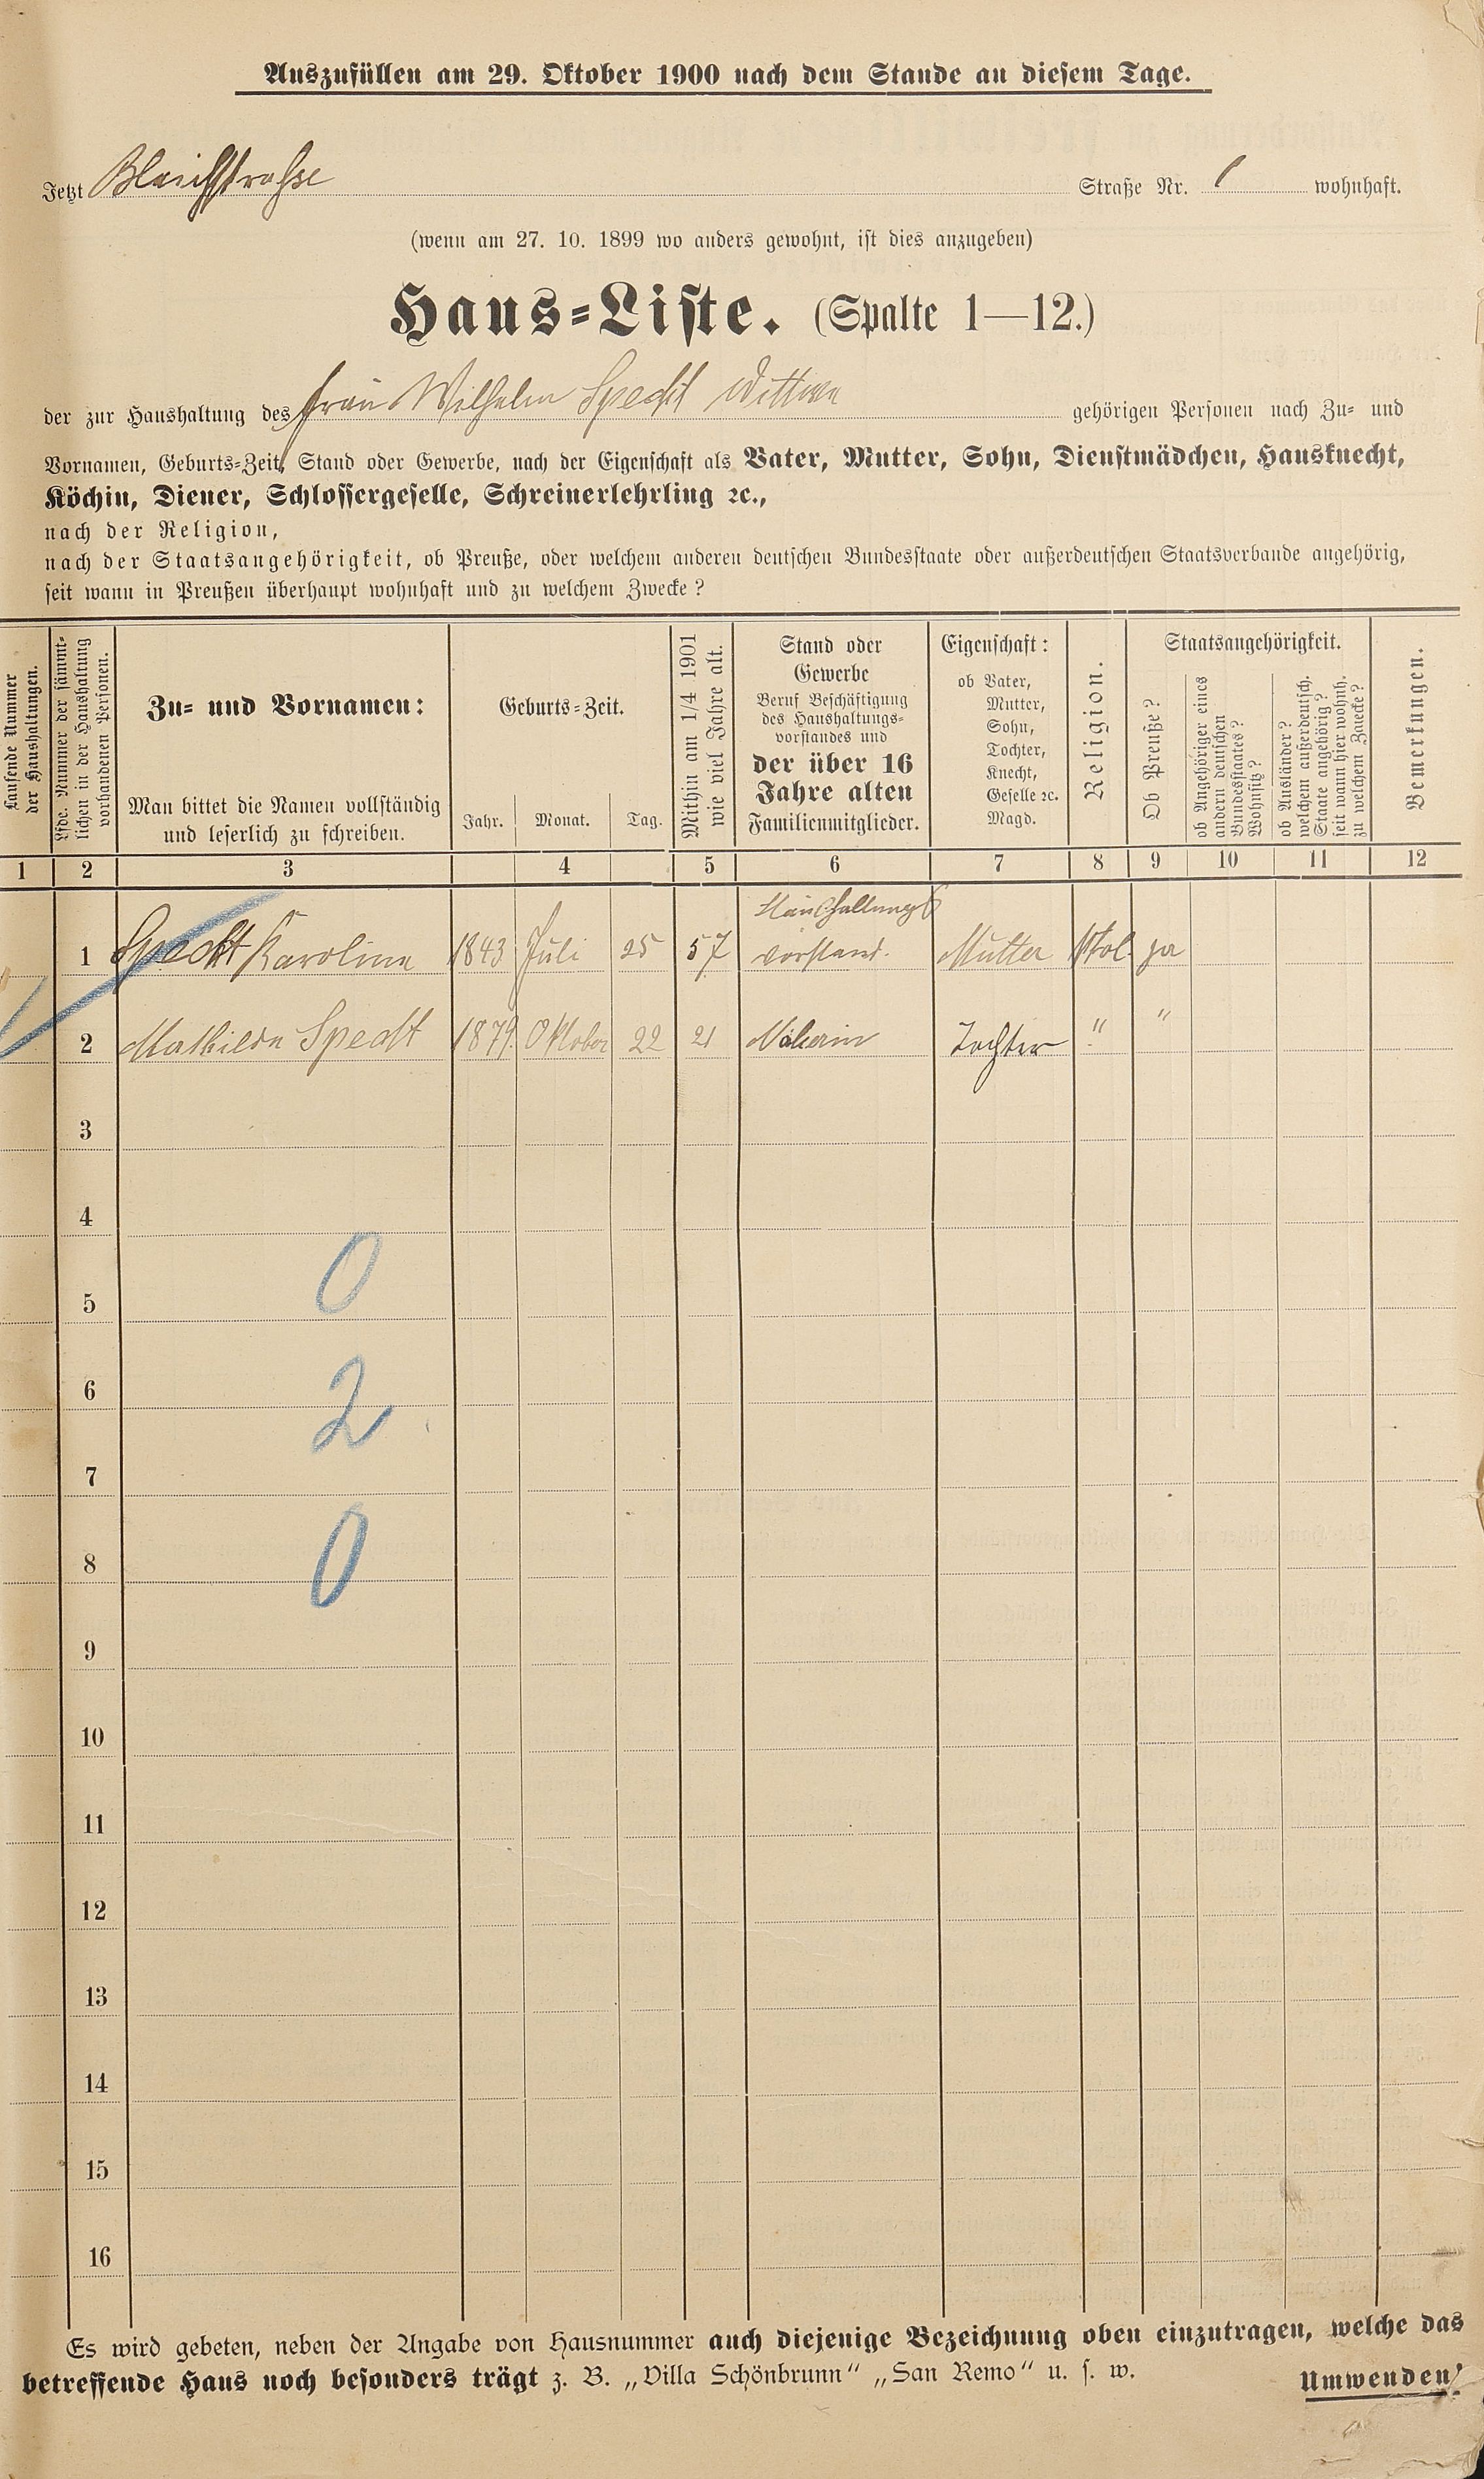 Auszufüllen am 29. Oktober 1900 nach dem Stande an diesem Tage.
Jetzt Bleichstraße Straße Nr. 1 wohnhaft.
(wenn am 27. 10. 1899 wo anders gewohnt, ist dies anzugeben)
Haus-Liste. (Spalte 1—12.)
der zur Haushaltung des Frau Wilhelm Specht Wittwe gehörigen Personen nach Zu- und
Vornamen, Geburts-Zeit, Stand oder Gewerbe, nach der Eigenschaft als Vater, Mutter, Sohn, Dienstmädchen, Hausknecht,
Köchin, Diener, Schlossergeselle, Schreinerlehrling ꝛc.,
nach der Religion,
nach der Staatsangehörigkeit, ob Preuße, oder welchem anderen deutschen Bundesstaate oder außerdeutschen Staatsverbande angehörig,
seit wann in Preußen überhaupt wohnhaft und zu welchem Zwecke?
Laufende Nummer
der Haushaltungen.
Lfde. Nummer der sämmt-
lichen in der Haushaltung
vorhandenen Personen.
Zu- und Vornamen:
Man bittet die Namen vollständig
und leserlich zu schreiben.
Geburts-Zeit.
Jahr. Monat. Tag.
Mithin am 1/4 1901
wie viel Jahre alt.
Stand oder
Gewerbe
Beruf Beschäftigung
des Haushaltungs-
vorstandes und
der über 16
Jahre alten
Familienmitglieder.
Eigenschaft:
ob Vater,
Mutter,
Sohn,
Tochter,
Knecht,
Geselle ꝛc.
Magd.
Religion.
Staatsangehörigkeit.
Ob Preuße?
ob Angehöriger eines
andern deutschen
Bundesstaates?
Wohnsitz?
ob Ausländer?
welchem außerdeutsch.
Staate angehörig?
seit wann hier wohnh.
zu welchem Zwecke?
Bemerkungen.
1 2 3 4 5 6 7 8 9 10 11 12
Haushaltungs
1 Specht Karoline 1843 Juli 25 57 vorstand. Mutter ja
2 Mathilde Specht 1879 Oktober 22 21 Näherin Tochter " "
3
4
0
5
6
2
7
8
0
9
10
11
12
13
14
15
16
Es wird gebeten, neben der Angabe von Hausnummer auch diejenige Bezeichnung oben einzutragen, welche das
betreffende Haus noch besonders trägt z. B. „Villa Schönbrunn“ „San Remo“ u. s. w.
Umwenden!